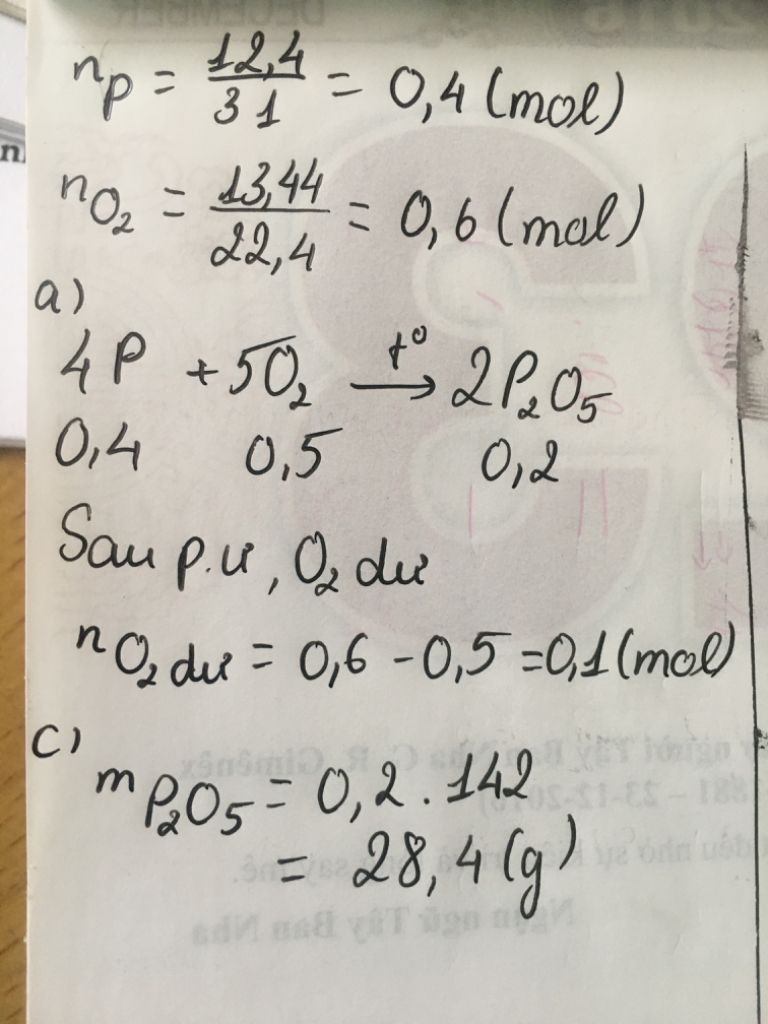 nP = 12,4/31 = 0,4 (mol)
nO₂ = 13,44/22,4 = 0,6 (mol)
a)
4P + 5O₂ —t°→ 2P₂O₅
0,4 0,5 0,2
Sau p.ư, O₂ dư
nO₂ dư = 0,6 - 0,5 = 0,1 (mol)
c)
mP₂O₅ = 0,2 . 142
= 28,4 (g)